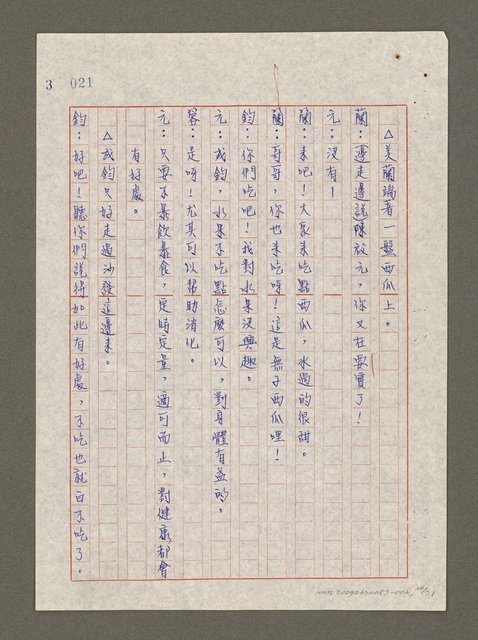 3 021
△美蘭端著一盤西瓜上。
蘭：邊走邊說陳放元，你又在耍寶了！
元：沒有！
蘭：來吧！大家來吃點西瓜，冰過的很甜。
蘭：哥哥，你也來吃呀！這是無子西瓜哩！
鈞：你們吃吧！我對水果沒興趣。
元：成鈞，水果不吃點怎麼可以，對身體有益的。
容：是呀！尤其可以幫助消化。
元：只要不暴飲暴食，定時定量，適可而止，對健康都會
有好處。
△成鈞只好走過沙發這邊來。
鈞：好吧！聽你們說得如此有好處，不吃也就白不吃了。